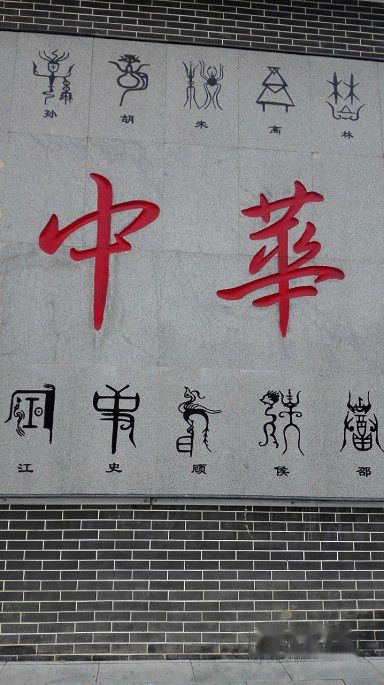 孙 胡 朱 高 林
中華
江 史 顾 侯 邵